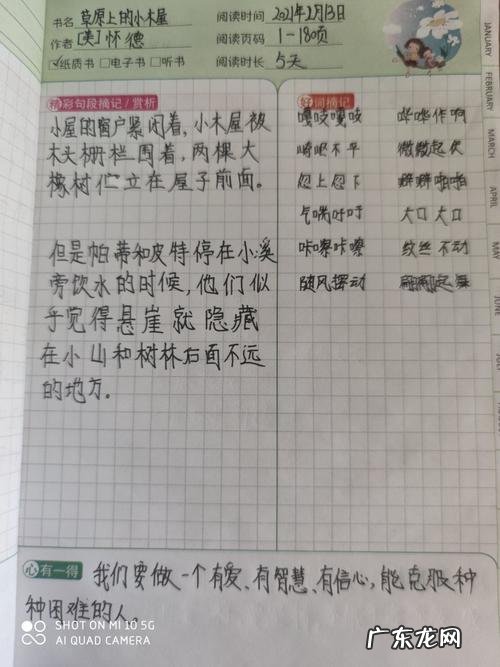 书名 草原上的小木屋 阅读时间 2021年2月13日
作者 [美]怀德 阅读页码 1-180页
纸质书 电子书 听书 阅读时长 5天
精彩句段摘记/赏析
小屋的窗户紧闭着,小木屋被
木头栅栏围着,两棵大
橡树伫立在屋子前面。
但是帕蒂和皮特停在小溪
旁饮水的时候,他们似
乎觉得悬崖就隐藏
在小山和树林后面不远
的地方。
好词摘记
嘎吱嘎吱 哗哗作响
崎岖不平 微微起伏
忽上忽下 噼噼啪啪
气喘吁吁 大口大口
咔嚓咔嚓 纹丝不动
随风摆动 翩翩起舞
心有一得 我们要做一个有爱、有智慧、有信心,能克服种
种困难的人。
JANUARY
FEBRUARY
MARCH
APRIL
MAY
SHOT ON MI 10 5G
AI QUAD CAMERA
广东龙网